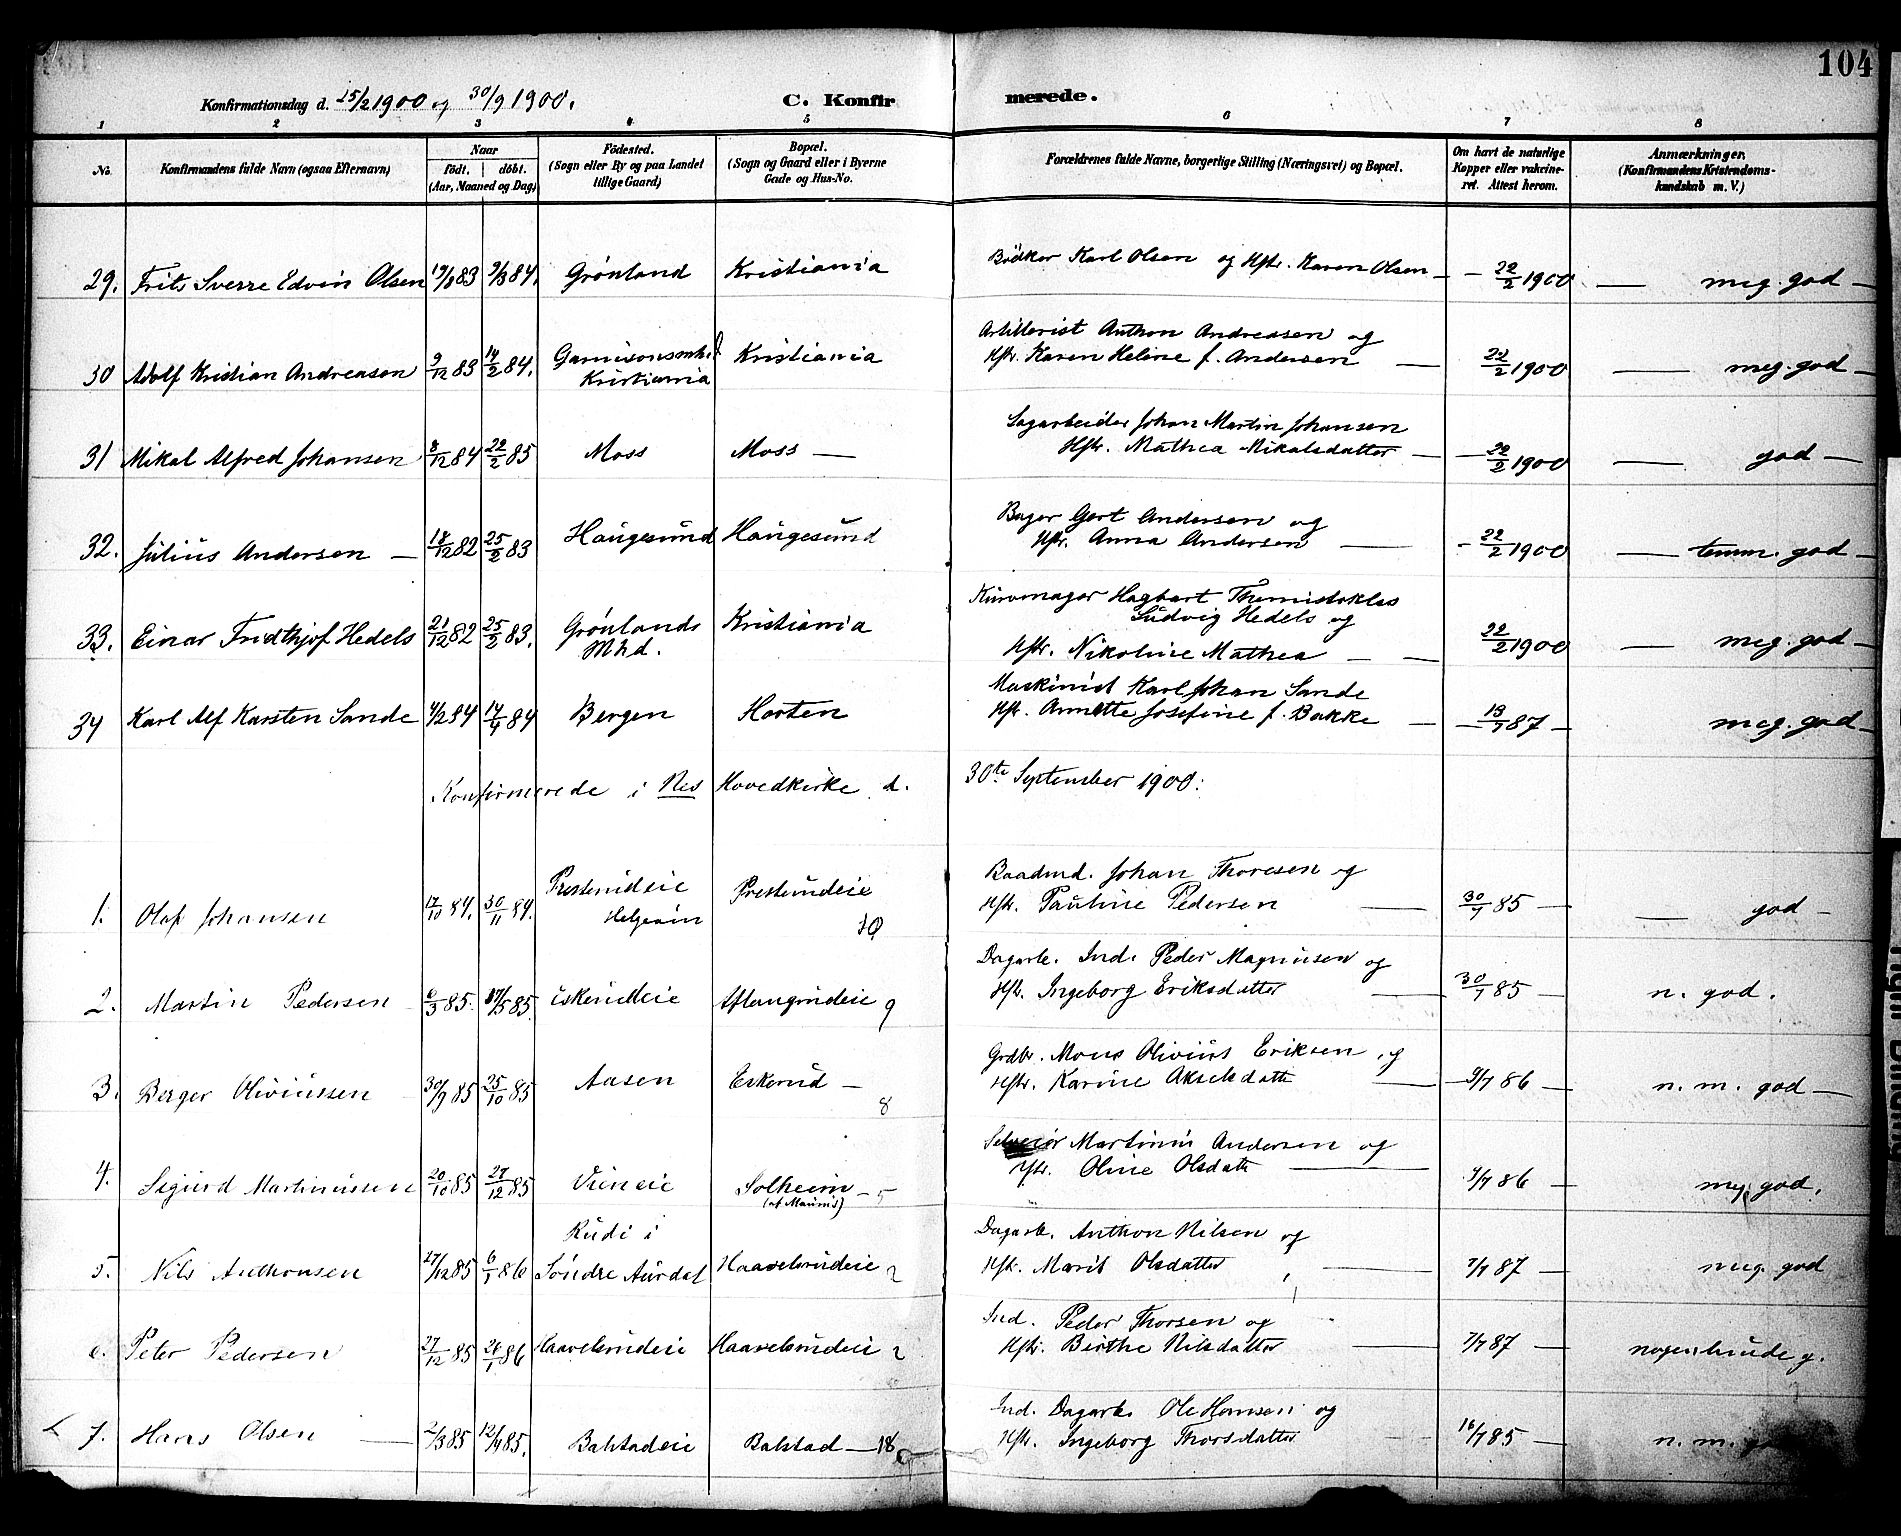 104
Konfirmationsdag d. 25/2 1900 og 30/9 1900. C. Konfirmerede.
1 2 3 4 5 6 7 8
No. Konfirmandens fulde Navn (ogsaa Efternavn) Naar födt. döbt. (Aar, Maaned og Dag) Födested. (Sogn eller By og paa Landet tillige Gaard) Bopæl. (Sogn og Gaard eller i Byerne Gade og Hus-No. Forældrenes fulde Navne, borgerlige Stilling (Næringsvei) og Bopæl. Om havt de naturlige Kopper eller vakcineret. Attest herom. Anmærkninger. (Konfirmandens Kristendomskundskab m. V.)
29. Frits Sverre Edvin Olsen 9/3 84. Grönland Kristiania Bödker Karl Olsen og Hstr. Karen Olsen — 22/2 1900 — meg. god —
Artillerist Anthon Andreasen og
30 Adolf Kristian Andreasen 9/12 83 14/2 84. Kristiania Kristiania Hstr. Karen Heline f. Andersen — 22/2 1900 — meg. god —
Sagarbeider Johan Martin Johansen
31 Mikal Alfred Johansen 8/12 84 22/2 85 Moss Moss — Hstr. Mathea Mikalsdatter — 22/2 1900 — god —
Bager Gert Andersen og
32. Julius Andersen — 18/12 82 25/2 83 Haugesund Haugesund Hstr. Anna Andersen — 22/2 1900 — temm. god —
Kurvmager Hagbart Themistokles
Ludvig Hedels og
33. Einar Fridthjof Hedels 21/12 82 25/2 83. Grönlands Mhd. Kristiania Hstr. Nikoline Mathea — 22/2 1900 — meg. god —
Maskinist Karl Johan Sande
34 Karl Alf Karsten Sande 4/2 84 14/4 84 Bergen Horten Hstr. Annette Josefine f. Bakke — 13/7 87 — meg. god —
Konfirmerede i Nes Hovedkirke d. 30te September 1900:
Baadmd. Johan Thoresen og
1. Olaf Johansen 17/10 84. 30/11 84. Prestenudeie Prestenudeie 10 Hstr. Pauline Pedersen — 30/7 85 — god —
Dagarb. Ind. Peder Magnusen og
2. Martin Pedersen 6/3 85. 17/5 85. Eskerudeie 9 Hstr. Ingeborg Eriksdatter — 30/7 85 — n. god.
Grdbr. Mons Olivius Eriksen og
3. Berger Oliviussen 30/9 85 25/10 85 Aasen Eskerud — 8 Hstr. Karine Akselsdatter — 9/7 86 — n. m. god —
Selveier Martinius Andersen og
4. Sigurd Martinussen 20/10 85 27/12 85 Solheim — 5 Hstr. Oline Olsdatter — 9/7 86 — meg. god.
Rudi i
Dagarb. Anthon Nilsen og
5. Nils Anthonsen 27/12 85 6/1 86 Söndre Aurdal Haavelsrudeie 2 Hstr. Marit Olsdatter — 7/7 87 — meg. god
Ind. Peder Thorsen og
6. Peter Pedersen 27/12 85 26/1 86 Haavelsrudeie Haavelsrudeie 2 Hstr. Birthe Nilsdatter — 7/7 87 — nogenlunde g.
Ind. Dagarb. Ole Hansen og
7. Hans Olsen — 2/3 85 12/4 85. Balstadeie Balstad — 18 Hstr. Ingeborg Thorsdatter 16/7 85 — n. m.